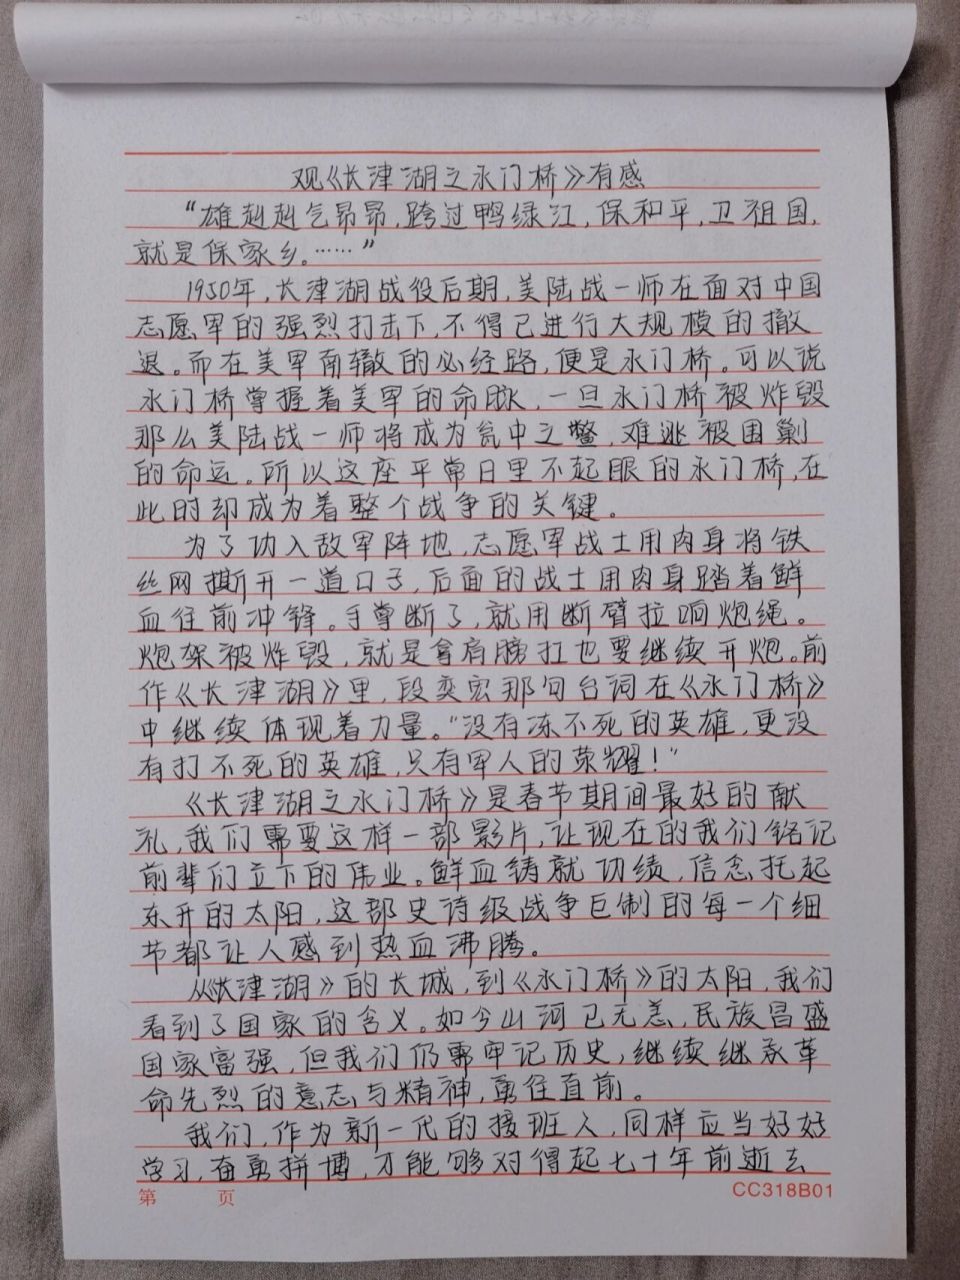 观《长津湖之水门桥》有感
“雄赳赳气昂昂,跨过鸭绿江,保和平,卫祖国,
就是保家乡。……”
1950年,长津湖战役后期,美陆战一师在面对中国
志愿军的强烈打击下,不得已进行大规模的撤
退。而在美军南辙的必经路,便是水门桥。可以说
水门桥掌握着美军的命脉,一旦水门桥被炸毁
那么美陆战一师将成为瓮中之鳖,难逃被围剿
的命运。所以这座平常日里不起眼的水门桥,在
此时却成为着整个战争的关键。
为了功入敌军阵地,志愿军战士用肉身将铁
丝网撕开一道口子,后面的战士用肉身踏着鲜
血往前冲锋。手掌断了,就用断臂拉响炮绳。
炮架被炸毁,就是拿肩膀扛也要继续开炮。前
作《长津湖》里,段奕宏那句台词在《水门桥》
中继续体现着力量。“没有冻不死的英雄,更没
有打不死的英雄,只有军人的荣耀!”
《长津湖之水门桥》是春节期间最好的献
礼,我们需要这样一部影片,让现在的我们铭记
前辈们立下的伟业。鲜血铸就功绩,信念托起
东升的太阳,这部史诗级战争巨制的每一个细
节都让人感到热血沸腾。
从《长津湖》的长城,到《水门桥》的太阳,我们
看到了国家的含义。如今山河已无恙,民族昌盛
国家富强,但我们仍需牢记历史,继续继承革
命先烈的意志与精神,勇往直前。
我们,作为新一代的接班人,同样应当好好
学习,奋勇拼搏,才能够对得起七十年前逝去
第 页
CC318B01